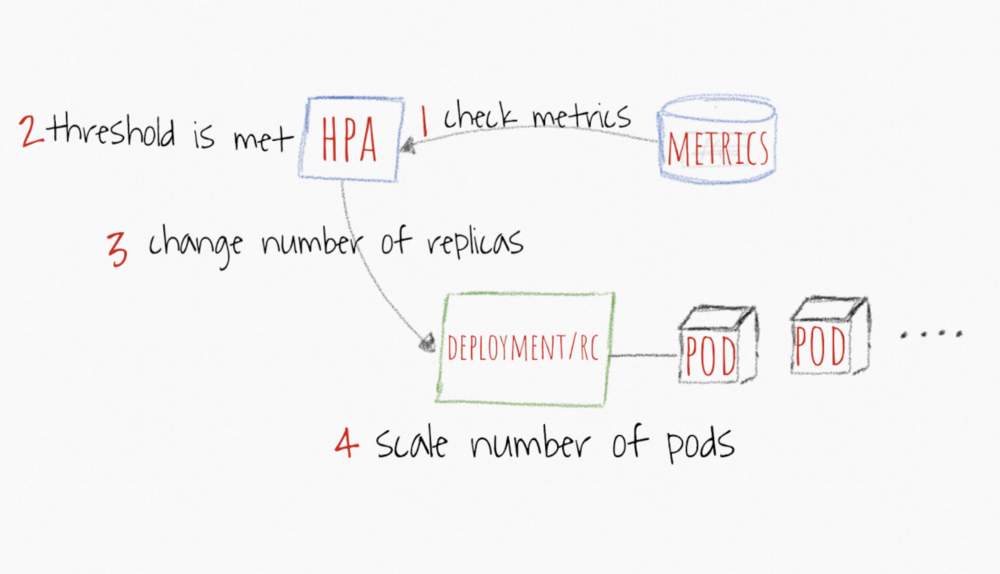 2 threshold is met
HPA
1 check metrics
METRICS
3 change number of replicas
DEPLOYMENT/RC
POD
POD
....
4 scale number of pods